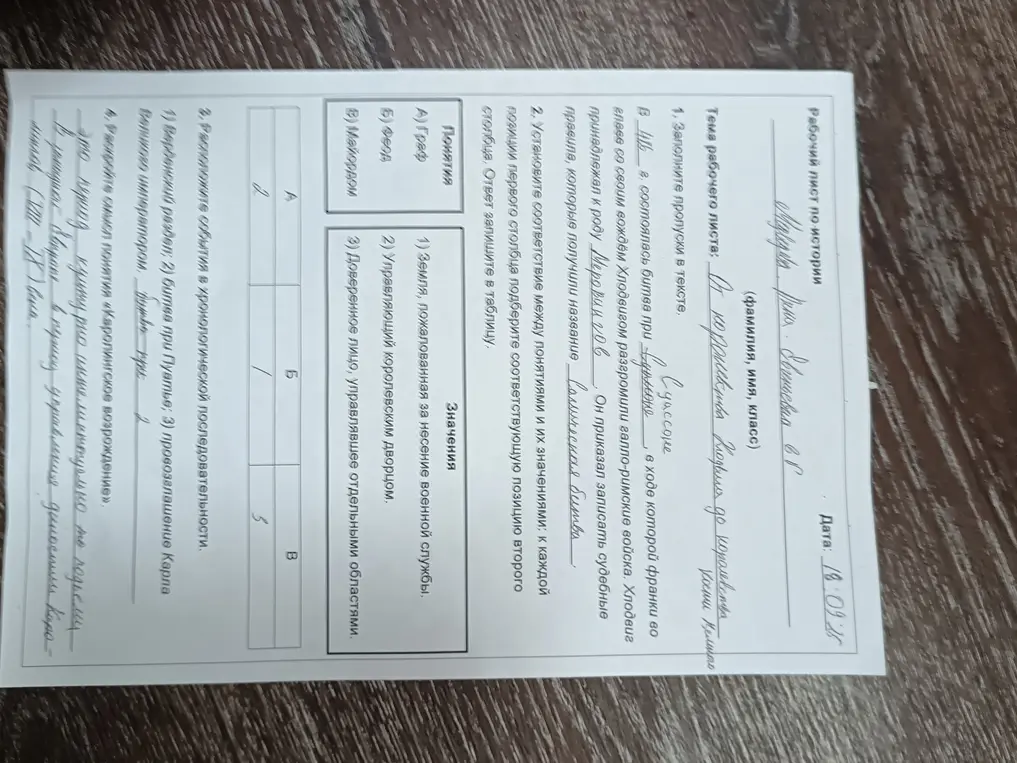 Рабочий лист по истории Дата: 18.09.25
(фамилия, имя, класс)
Тема рабочего листа: От королевства до королевства
1. Заполните пропуски в тексте.
В г. состоялась битва при Суассоне, в ходе которой франки во
главе со своим вождём Хлодвигом разгромили галло-римские войска. Хлодвиг
принадлежал к роду Меровингов. Он приказал записать судебные
правила, которые получили название Салическая битва.
2. Установите соответствие между понятиями и их значениями: к каждой
позиции первого столбца подберите соответствующую позицию второго
столбца. Ответ запишите в таблицу.
Понятия Значения
А) Граф 1) Земля, пожалованная за несение военной службы.
Б) Феод 2) Управляющий королевским дворцом.
В) Майордом 3) Доверенное лицо, управлявшее отдельными областями.
А Б В
2 1 3
3. Расположите события в хронологической последовательности.
1) Верденский раздел; 2) битва при Пуатье; 3) провозглашение Карла
Великого императором. битва при 2
4. Раскройте смысл понятия «Каролингское возрождение».
это период культурно интеллектуально по подъему
в Европы в период управления династии Каро-
лингов (VIII – IX) века.